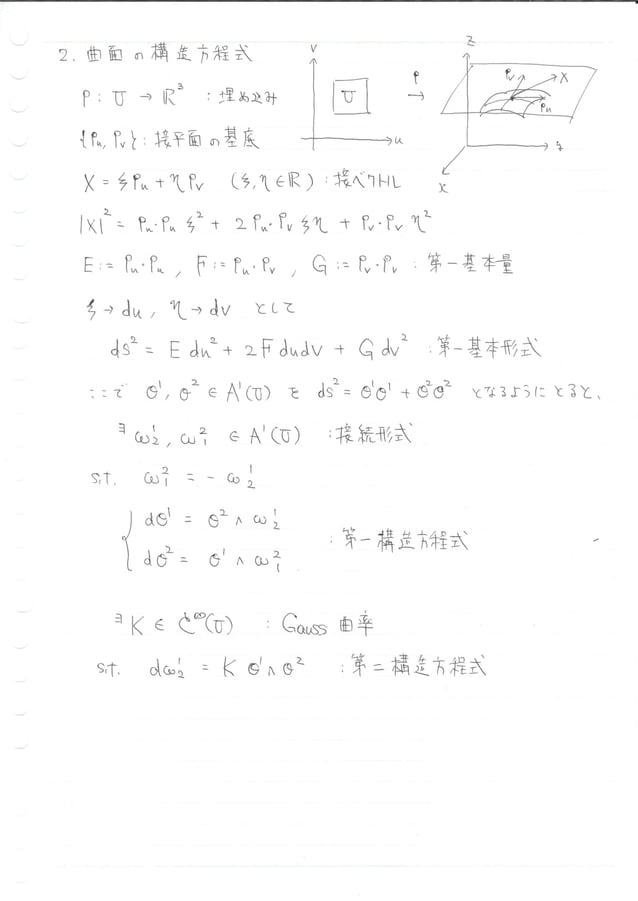 2. 曲面の構造方程式
P : U → ℝ³ : 埋め込み
{Pu, Pv} : 接平面の基底
X = ξPu + ηPv (ξ, η ∈ ℝ) : 接ベクトル
|X|² = Pu・Pu ξ² + 2Pu・Pv ξη + Pv・Pv η²
E := Pu・Pu , F := Pu・Pv , G := Pv・Pv : 第一基本量
ξ → du, η → dv として
ds² = E du² + 2F dudv + G dv² : 第一基本形式
ここで θ¹, θ² ∈ A¹(U) を ds² = θ¹θ¹ + θ²θ² となるようにとると、
∃ω¹₂, ω²₁ ∈ A¹(U) : 接続形式
s.t. ω²₁ = - ω¹₂
dθ¹ = θ² ∧ ω¹₂
dθ² = θ¹ ∧ ω²₁
: 第一構造方程式
∃K ∈ C^∞(U) : Gauss 曲率
s.t. dω¹₂ = K θ¹ ∧ θ² : 第二構造方程式
v
U
u
P
→
z
Pv
X
Pu
y
x